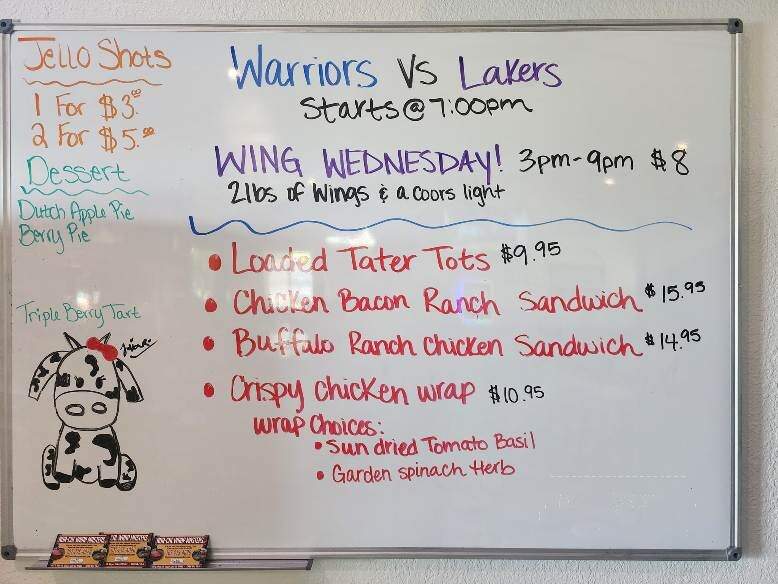 Jello Shots
1 For $3.00
2 For $5.00
Dessert
Dutch Apple Pie
Berry Pie
Triple Berry Tart
Warriors Vs Lakers
Starts@7:00pm
WING WEDNESDAY! 3pm-9pm $8
2lbs of Wings & a Coors light
• Loaded Tater Tots $9.95
• Chicken Bacon Ranch Sandwich $15.95
• Buffalo Ranch Chicken Sandwich $14.95
• Crispy chicken wrap $10.95
Wrap Choices:
• Sun dried Tomato Basil
• Garden spinach Herb